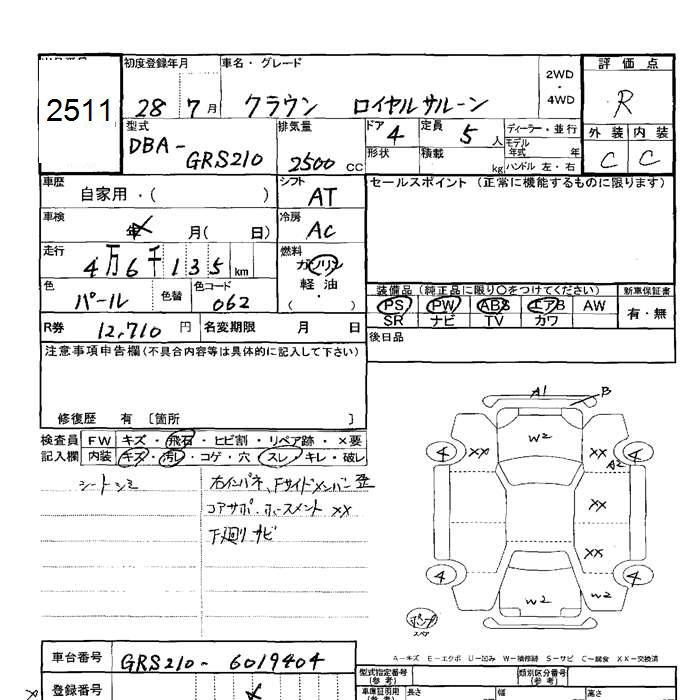 初度登録年月 車名・グレード 2WD・4WD 評価点
2511
28 7月 クラウン ロイヤルサルーン R
型式 排気量 ドア 4 定員 5人 ディーラー・並行 外装 内装
DBA-GRS210 2500cc 形状 積載 kg モデル年式 年 ハンドル 左・右 C C
車歴 自家用・( ) シフト AT セールスポイント (正常に機能するものに限ります)
車検 年 月( 日) 冷房 AC
走行 4万6千135km 燃料 ガソリン・軽油 ( )
色 パール 色替 色コード 062 装備品 (純正品に限り○をつけてください) 新車保証書
PS PW ABS エアB AW 有・無
R券 12,710円 名変期限 月 日 SR ナビ TV カワ
注意事項申告欄(不具合内容等は具体的に記入して下さい) 後日品
修復歴 有 [箇所 ]
検査員 FW キズ・飛石・ヒビ割・リペア跡・×要
記入欄 内装 キズ・汚レ・コゲ・穴・スレ・キレ・破レ
シートシミ 右インパネ、Fサイドメンバー歪
コアサポ、ホースメント XX
下廻りサビ
A1 B
W2
4 XX XX 4
A2
XX
XX
4 W2 W2 4
スペア
A-キズ E-エクボ U-凹み W-補修跡 S-サビ C-腐食 XX-交換済
車台番号 GRS210-6019404
型式指定番号(参考) 類別区分番号(参考)
登録番号 長さ 幅 高さ